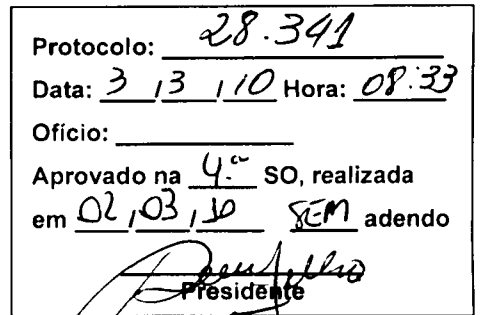 Protocolo: 28.341
Data: 3 / 3 / 10 Hora: 08:33
Ofício:
Aprovado na 4.ª SO, realizada
em 02 / 03 / 10 SEM adendo
Presidente